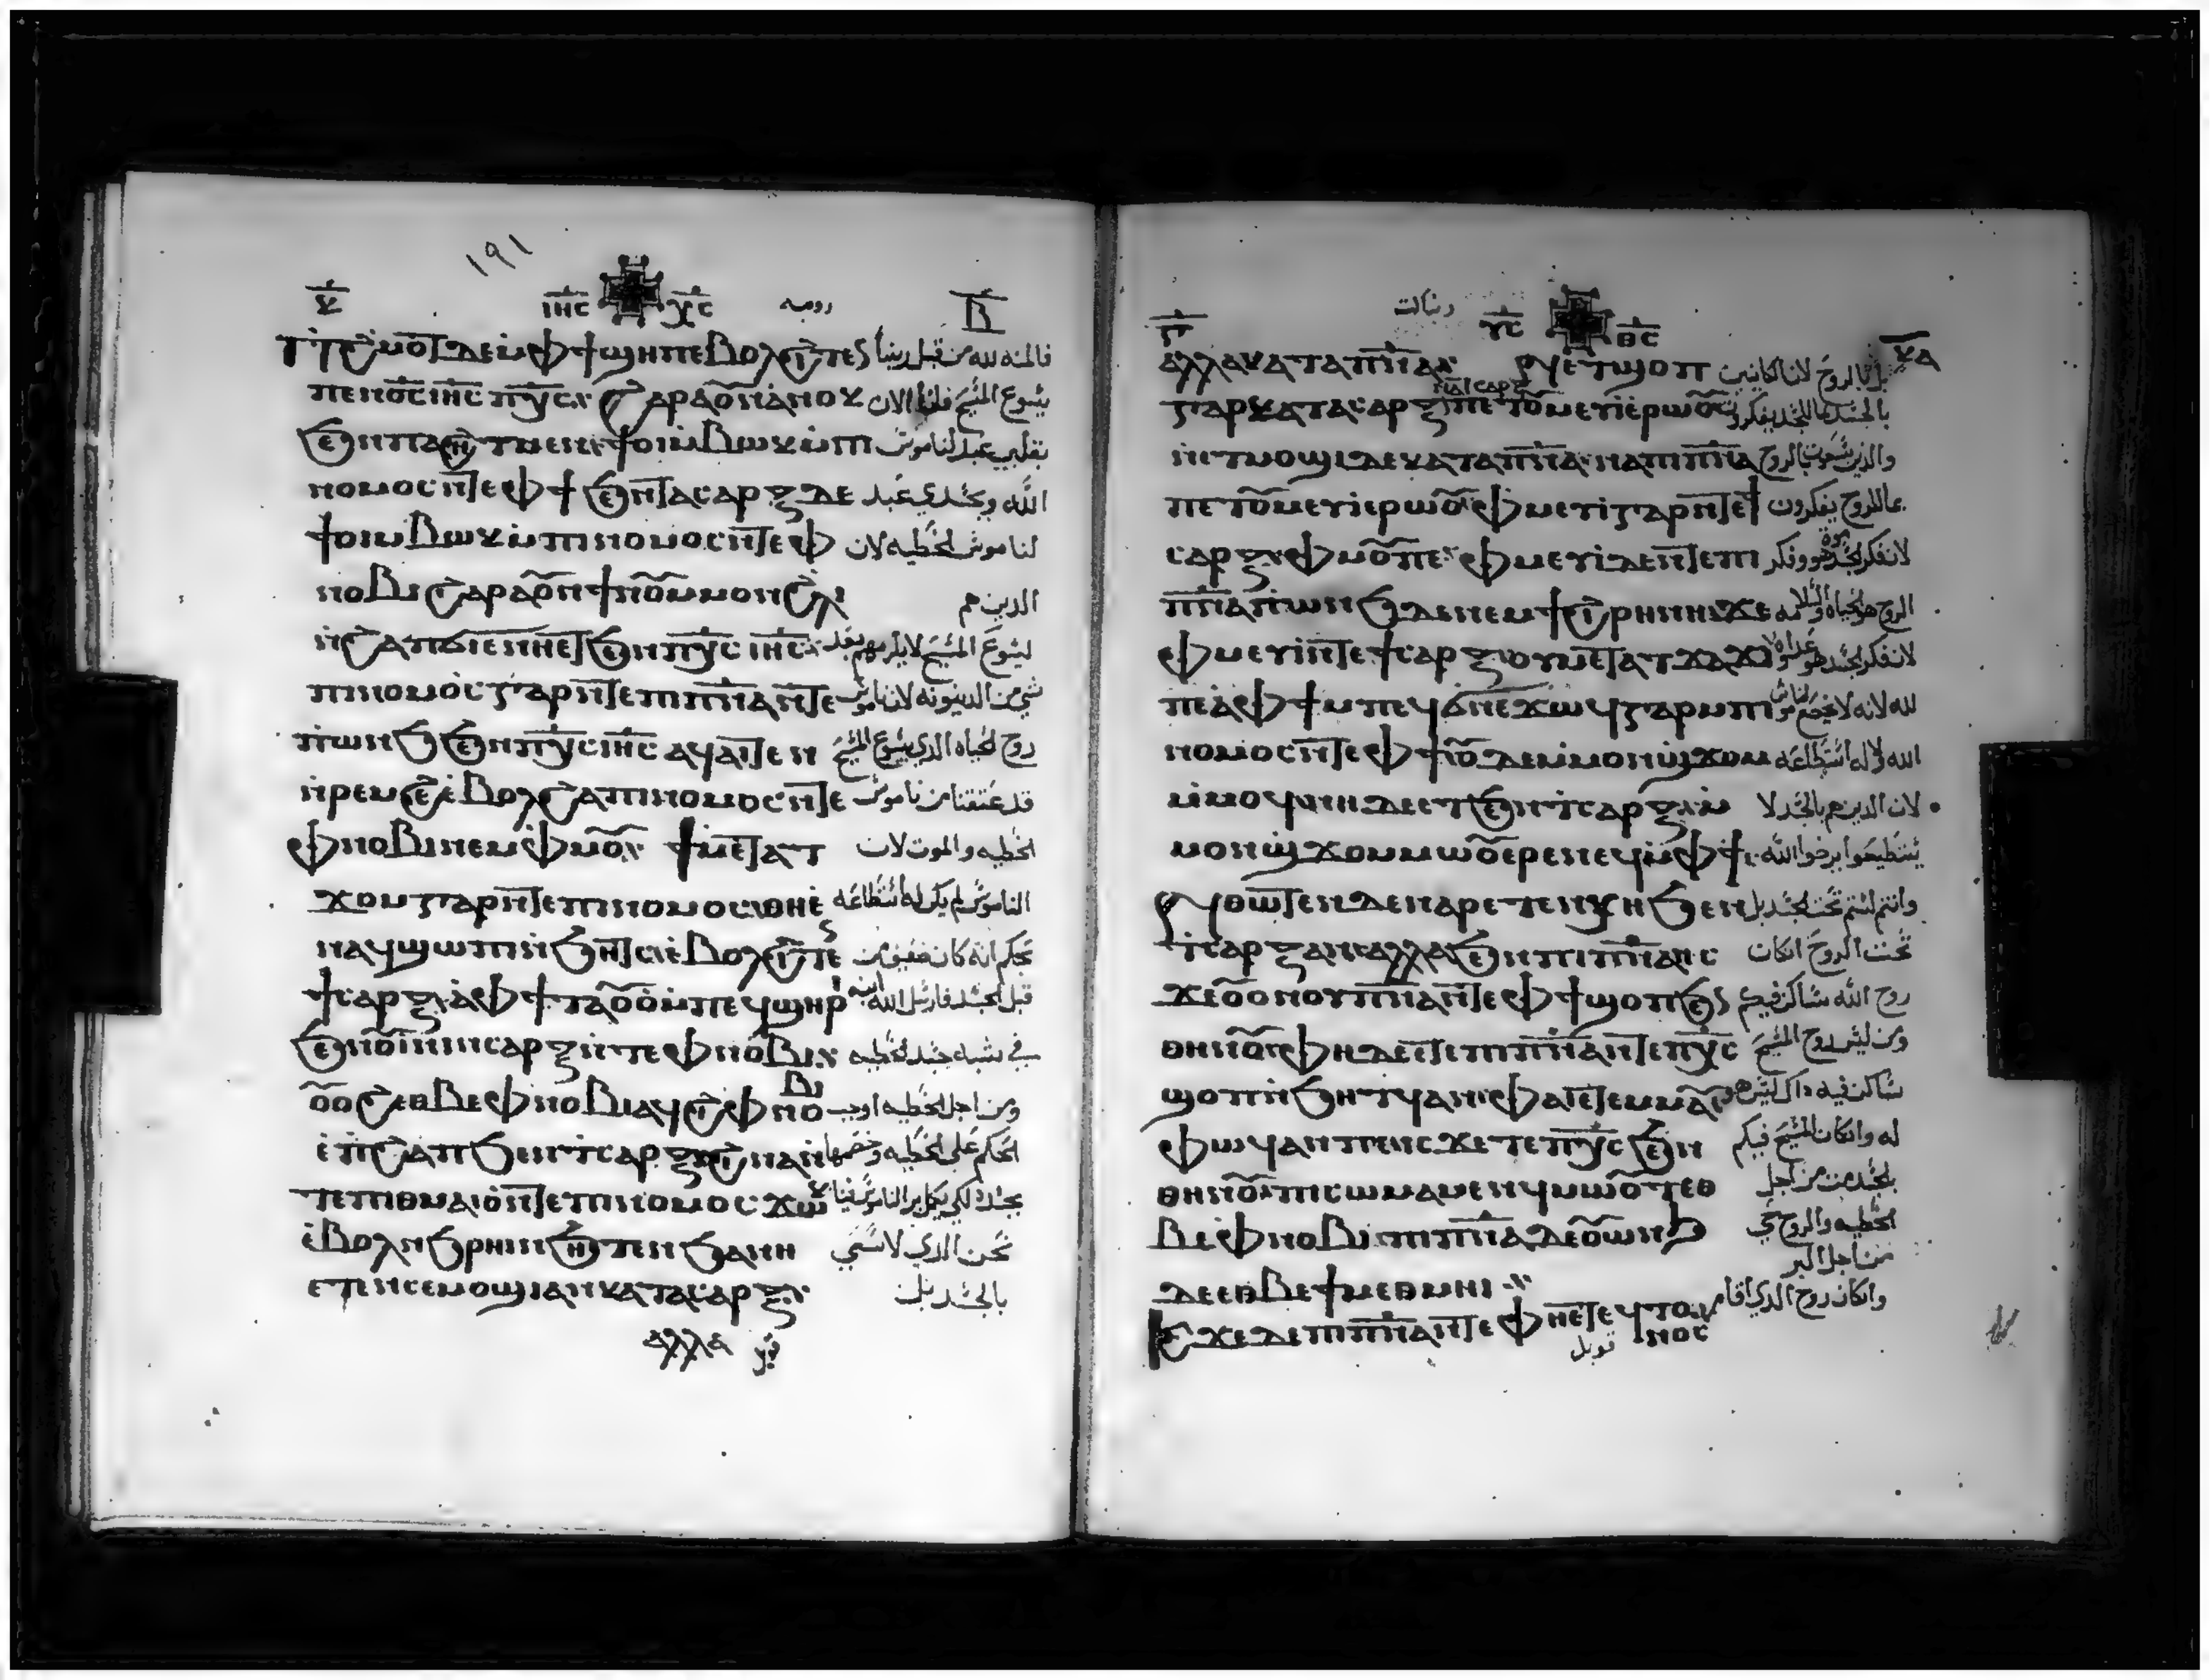 191
ⲕ ⲓⲏⲥ ⲭⲥ رومية ⲃ
ⲡⲓϩⲙⲟⲧ ⲇⲉ ⲙⲫϯ ϣⲏⲡ ⲉⲃⲟⲗϩⲓⲧⲉⲛ فالمنه لله من قبل ربنا
ⲡⲉⲛⲟⲥ ⲓⲏⲥ ⲡⲭⲥ ϩⲁⲣⲁ ⲟⲩⲛ ⲁⲛⲟⲕ يسوع المسيح فانا الان
ϧⲉⲛ ⲡⲁϩⲏⲧ ⲙⲉⲛ ϯⲟⲓ ⲙⲃⲱⲕ ⲙⲡⲓ بقلبي عبد لناموس
ⲛⲟⲙⲟⲥ ⲛⲧⲉ ⲫϯ ϧⲉⲛ ⲧⲁⲥⲁⲣⲝ ⲇⲉ الله وبجسدي عبد
ϯⲟⲓ ⲙⲃⲱⲕ ⲙⲡⲓⲛⲟⲙⲟⲥ ⲛⲧⲉ ⲫ لناموس الخطيه لان
ⲛⲟⲃⲓ ϩⲁⲣⲁ ⲟⲩⲛ ϯⲛⲟⲩ ⲙⲙⲟⲛ ϩⲗⲓ الدين هم
ⲛϩⲁⲡ ϭⲓ ⲉⲛⲏⲉⲧϧⲉⲛ ⲡⲭⲥ ⲓⲏⲥ ليسوع المسيح لا يلزمهم بعد
ⲡⲓⲛⲟⲙⲟⲥ ⲅⲁⲣ ⲛⲧⲉ ⲡⲓⲡⲛⲁ ⲛⲧⲉ شي من الدينونه لان ناموس
ⲡⲱⲛϧ ϧⲉⲛ ⲡⲭⲥ ⲓⲏⲥ ⲁϥⲁⲓⲧⲉⲛ روح الحياه الذي بيسوع المسيح
ⲛⲣⲉⲙϩⲉ ⲉⲃⲟⲗϩⲁ ⲡⲓⲛⲟⲙⲟⲥ ⲛⲧⲉ قد عتقنا من ناموس
ⲫⲛⲟⲃⲓ ⲛⲉⲙ ⲫⲙⲟⲩ ϯⲙⲉⲧⲁⲧ الخطيه والموت لان
ϫⲟⲙ ⲅⲁⲣ ⲛⲧⲉ ⲡⲓⲛⲟⲙⲟⲥ ⲑⲏⲉ الناموس لم يكن له استطاعه
ⲛⲁϥϣⲱⲛⲓ ⲛϧⲏⲧⲥ ⲉⲃⲟⲗϩⲓⲧⲉⲛ بحكم انه كان ضعيف من
ϯⲥⲁⲣⲝ ⲁ ⲫϯ ⲧⲁⲟⲩⲟ ⲙⲡⲉϥϣⲏⲣⲓ قبل الجسد فارسل الله ابنه
ϧⲉⲛ ⲟⲩⲓⲛⲓ ⲛⲥⲁⲣⲝ ⲛⲧⲉ ⲫⲛⲟⲃⲓ في شبه جسد الخطيه
ⲟⲩⲟϩ ⲉⲑⲃⲉ ⲫⲛⲟⲃⲓ ⲁϥϩⲓ ⲫⲛⲟⲃⲓ ومن اجل الخطيه اوجب
ⲉⲡϩⲁⲡ ϧⲉⲛ ⲧⲥⲁⲣⲝ ϩⲓⲛⲁ ⲛ الحكم على الخطيه وخصمها
ⲧⲉ ⲡⲓⲑⲙⲁⲓⲟ ⲛⲧⲉ ⲡⲓⲛⲟⲙⲟⲥ ϫⲱⲕ بجسده لكي يكمل بر الناموس فينا
ⲉⲃⲟⲗ ⲛϧⲣⲏⲓ ⲛϧⲏⲧⲉⲛ ϧⲁ ⲛⲏ نحن الذي لا نسعي
ⲉⲧⲉⲛⲥⲉⲙⲟϣⲓ ⲁⲛ ⲕⲁⲧⲁ ⲥⲁⲣⲝ بالجسد بل
ⲁⲗⲗⲁ
ⲅ رسالت ⲩⲥ ⲑⲥ ⲕⲁ
ⲁⲗⲗⲁ ⲕⲁⲧⲁ ⲡⲛⲁ ⲛⲏ ⲉⲧϣⲟⲡ بل بالروح لان الكاينين
ⲅⲁⲣ ⲕⲁⲧⲁ ⲥⲁⲣⲝ ⲛⲁ ⲧⲥⲁⲣⲝ ⲡⲉⲧⲟⲩⲙⲉⲩⲓ ⲉⲣⲱⲟⲩ بالجسد بما للجسد يفكرون
ⲛⲏⲉⲧⲙⲟϣⲓ ⲇⲉ ⲕⲁⲧⲁ ⲡⲛⲁ ⲛⲁ ⲡⲓⲡⲛⲁ والذين يسعون بالروح
ⲡⲉⲧⲟⲩⲙⲉⲩⲓ ⲉⲣⲱⲟⲩ ⲫⲙⲉⲩⲓ ⲅⲁⲣ ⲛⲧⲉ ϯ بما للروح يفكرون
ⲥⲁⲣⲝ ⲫⲙⲟⲩ ⲡⲉ ⲫⲙⲉⲩⲓ ⲇⲉ ⲛⲧⲉ ⲡⲓ لان فكر الجسد هو موت وفكر
ⲡⲛⲁ ⲡⲱⲛϧ ⲇⲉ ⲛⲉⲙ ϯϩⲓⲣⲏⲛⲏ ϫⲉ الروح هو الحياه والسلامه
ⲫⲙⲉⲩⲓ ⲛⲧⲉ ϯⲥⲁⲣⲝ ⲟⲩⲙⲉⲧϫⲁϫⲓ لان فكر الجسد هو عداوه
ⲡⲉ ⲁ ⲫϯ ⲙⲡⲉϥϭⲛⲉϫⲱϥ ⲅⲁⲣ ⲙⲡⲓ لله لانه لا يخضع لناموس
ⲛⲟⲙⲟⲥ ⲛⲧⲉ ⲫϯ ⲟⲩⲇⲉ ⲙⲙⲟⲛ ϣϫⲟⲙ الله ولا له استطاعه
ⲙⲙⲟϥ ⲛⲏ ⲇⲉ ⲉⲧϧⲉⲛ ⲧⲥⲁⲣⲝ ⲙ لان الدين هم بالجسد لا
ⲙⲟⲛ ϣϫⲟⲙ ⲙⲙⲱⲟⲩ ⲉⲣⲉⲛⲉϥ ⲙⲫϯ يستطيعوا يرضوا الله
ⲛⲑⲱⲧⲉⲛ ⲇⲉ ⲛⲁⲣⲉⲧⲉⲛⲭⲏ ϧⲉⲛ وانتم لستم تحت الجسد بل
ⲧⲥⲁⲣⲝ ⲁⲛ ⲁⲗⲗⲁ ϧⲉⲛ ⲡⲓⲡⲛⲁ ⲓⲥ تحت الروح ان كان
ϫⲉ ⲟⲩⲟⲛ ⲟⲩⲡⲛⲁ ⲛⲧⲉ ⲫϯ ϣⲟⲡ ϧⲉⲛ روح الله ساكن فيكم
ⲑⲏⲛⲟⲩ ⲫⲏ ⲇⲉ ⲉⲧⲉ ⲡⲓⲡⲛⲁ ⲛⲧⲉ ⲡⲭⲥ ومن ليس روح المسيح
ϣⲟⲡ ⲛϧⲏⲧϥ ⲁⲛ ⲫⲁⲓ ⲉⲧⲉⲙⲙⲁⲩ ساكن فيه داك ليس هو
ⲫⲱϥ ⲁⲛ ⲡⲉ ⲓⲥϫⲉ ⲧⲉ ⲡⲭⲥ ϧⲉⲛ له وان كان المسيح فيكم
ⲑⲏⲛⲟⲩ ⲡⲓⲥⲱⲙⲁ ⲙⲉⲛ ϥⲙⲱⲟⲩⲧ ⲉⲑ بالجسد ميت من اجل
ⲃⲉ ⲫⲛⲟⲃⲓ ⲡⲓⲡⲛⲁ ⲇⲉ ⲟⲩⲱⲛϧ الخطيه والروح حي
ⲇⲉ ⲉⲑⲃⲉ ϯⲙⲉⲑⲙⲏⲓ من اجل البر
ⲓⲥϫⲉ ⲇⲉ ⲡⲓⲡⲛⲁ ⲛⲧⲉ ⲫⲏ ⲉⲧⲉϥⲧⲟⲩ وان كان روح الذي اقام
ⲛⲟⲥ